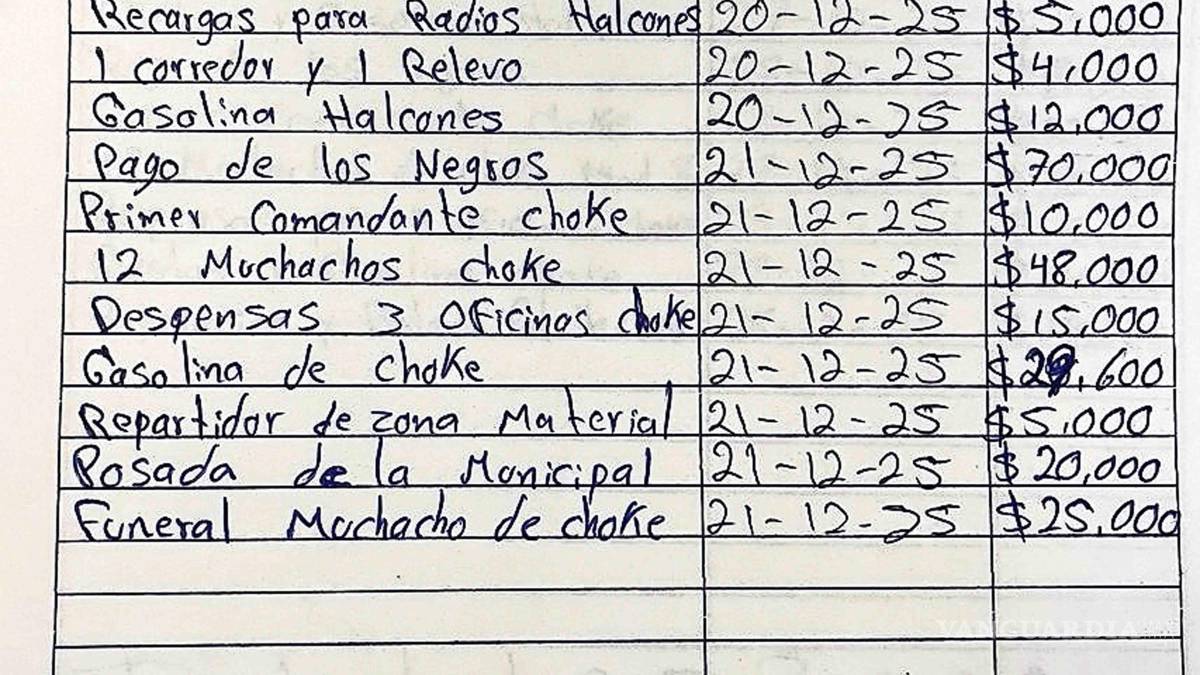 Recargas para Radios Halcones 20-12-25 $5,000
1 corredor y 1 Relevo 20-12-25 $4,000
Gasolina Halcones 20-12-25 $12,000
Pago de los Negros 21-12-25 $70,000
Primer Comandante choke 21-12-25 $10,000
12 Muchachos choke 21-12-25 $48,000
Despensas 3 Oficinas choke 21-12-25 $15,000
Gasolina de choke 21-12-25
Repartidor de zona Material 21-12-25 $5,000
Posada de la Municipal 21-12-25 $20,000
Funeral Muchacho de choke 21-12-25 $25,000
VANGUARDIA